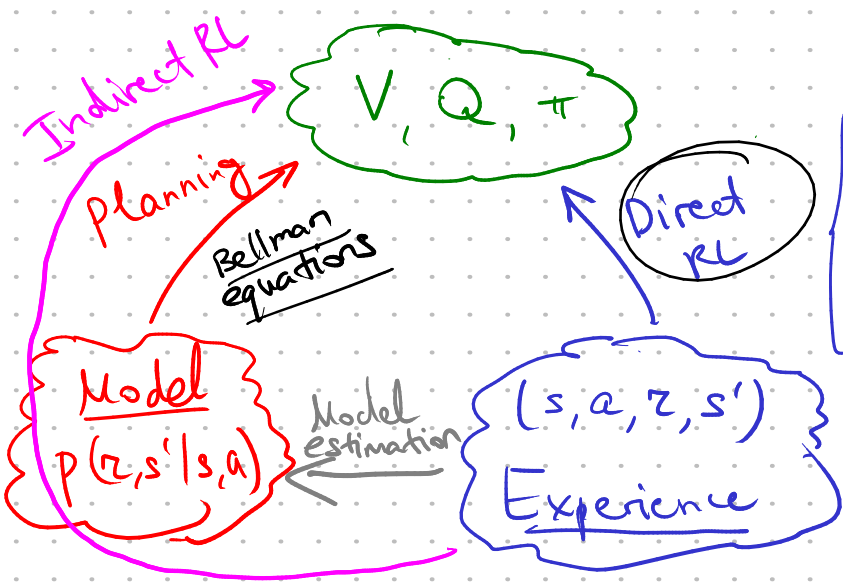 Indirect RL
V, Q, π
Planning
Bellman
equations
Direct
RL
Model
p(r,s'|s,a)
Model
estimation
(s,a,r,s')
Experience